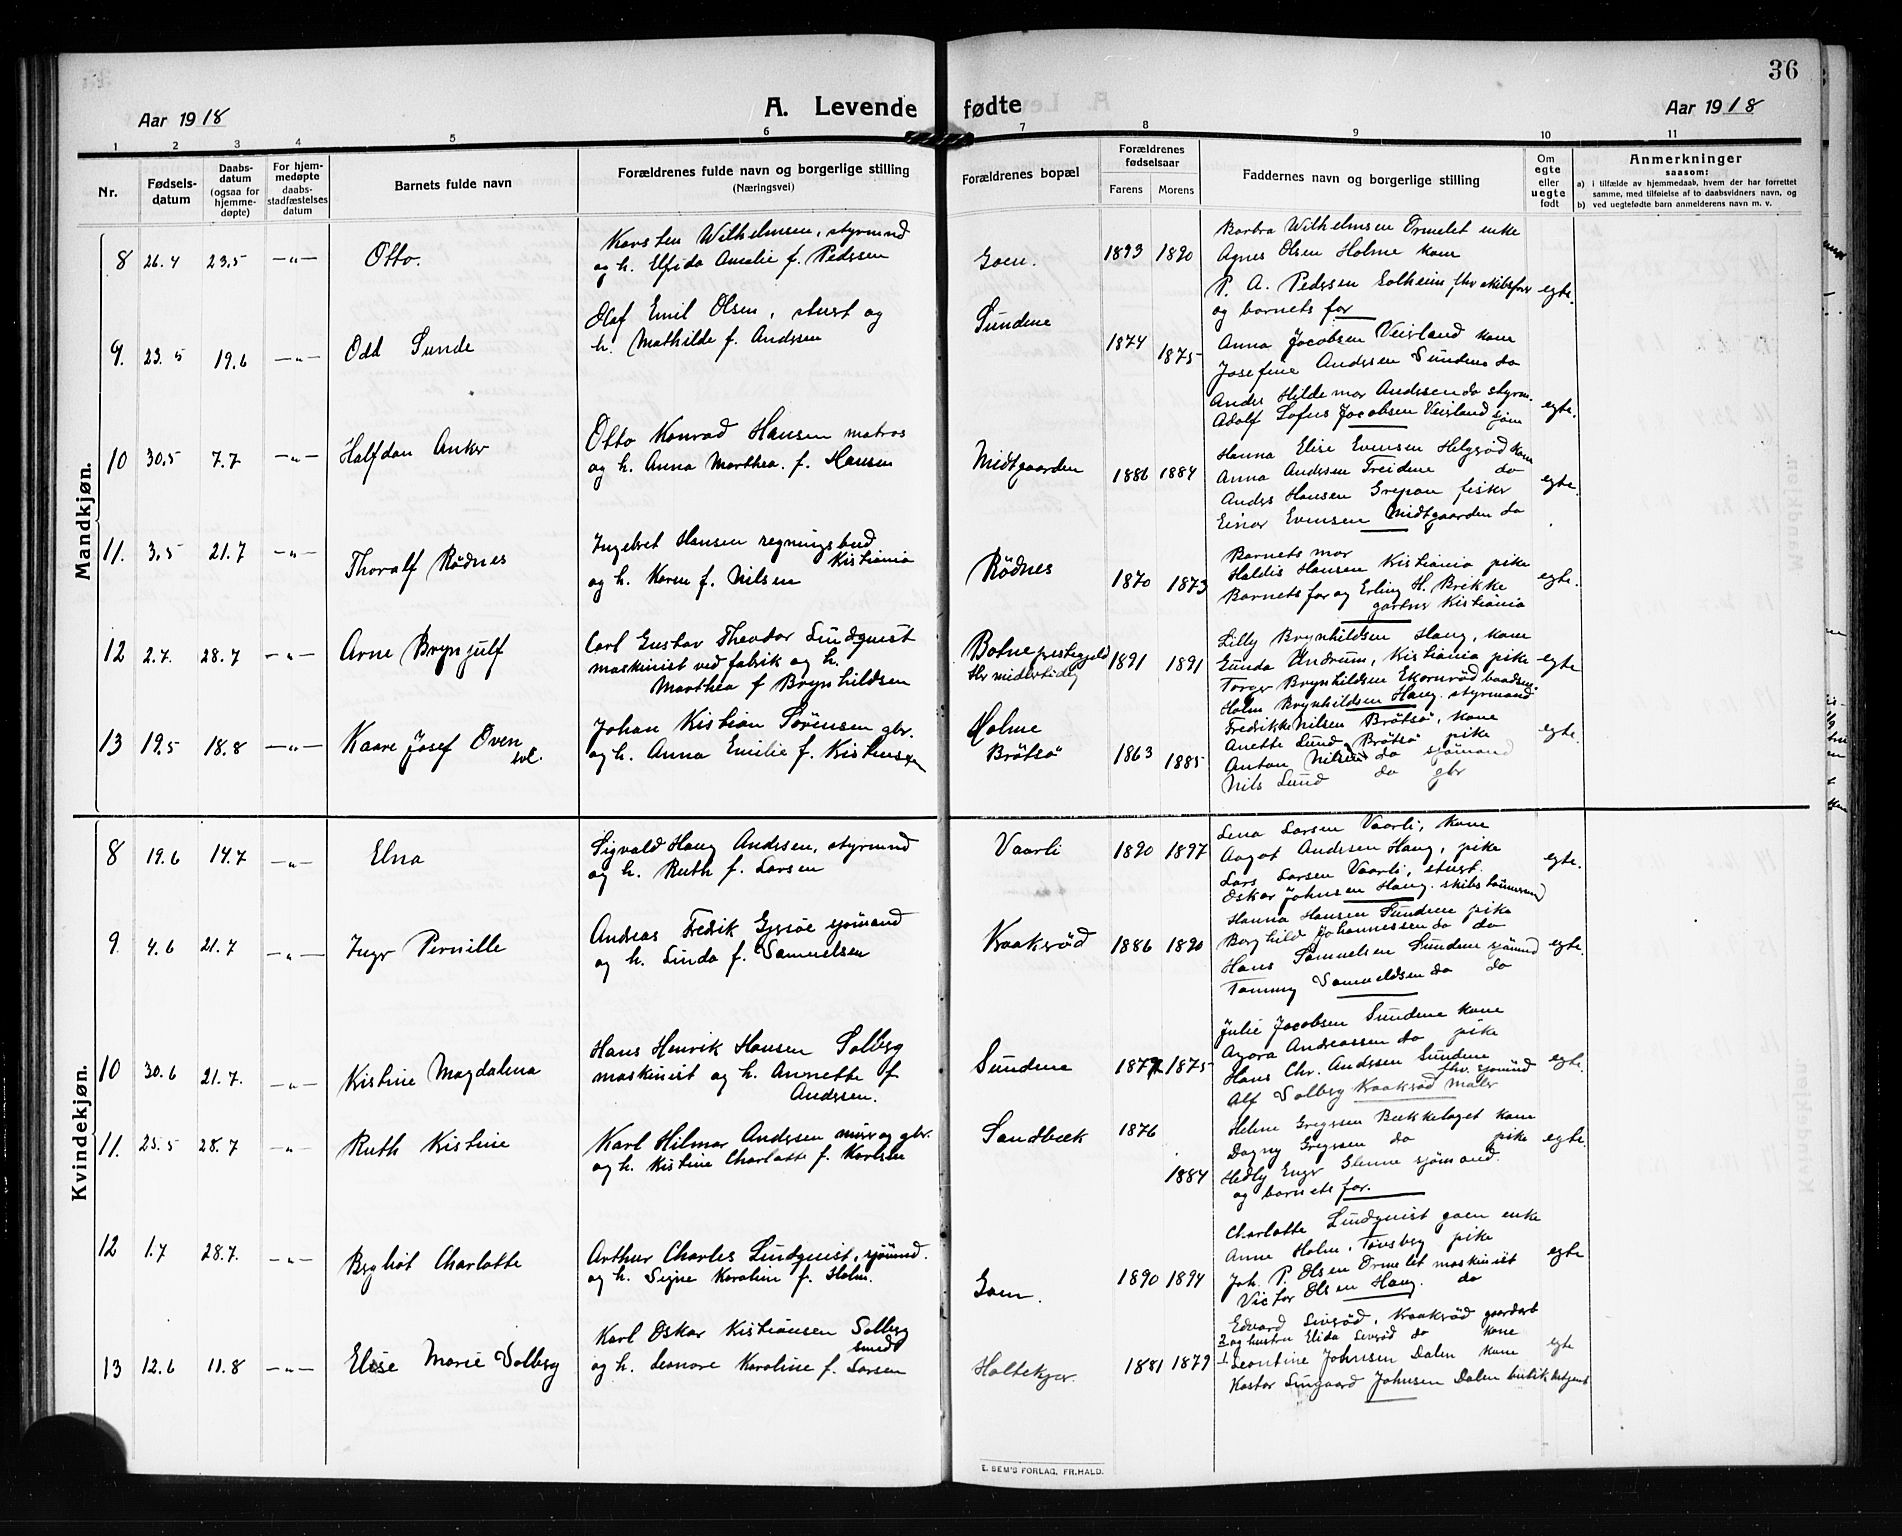 36
Aar 1918
A. Levende fødte
Aar 1918
1 2 3 4 5 6 7 8 9 10 11
Nr.
Fødsels-
datum
Daabs-
datum
(ogsaa for
hjemme-
døpte)
For hjem-
medøpte
daabs-
stadfæstelses
datum
Barnets fulde navn
Forældrenes fulde navn og borgerlige stilling
(Næringsvei)
Forældrenes bopæl
Forældrenes
fødselsaar
Farens Morens
Faddernes navn og borgerlige stilling
Om
egte
eller
uegte
født
Anmerkninger
saasom:
a) i tilfælde av hjemmedaab, hvem der har forrettet
samme, med tilføielse af to daabsvidners navn, og
b) ved uegtefødte barn anmelderens navn m. v.
Mandkjøn.
8 26.4 23.5 —„— Otto.
Karsten Wilhelmsen, styrmnd
og h. Elfida Amalie f. Pedersen
Goen. 1893 1890
Barbra Wilhelmsen Ormelet enke
Agnes Olsen Holme kone
P. A. Pedersen Solheim fhv skibsfør
og barnets far
egte.
9. 23.5 19.6 —„— Odd Sunde
Olaf Emil Olsen, stuert og
h. Mathilde f. Andersen
Sundene 1874 1875
Anna Jacobsen Veierland kone
Josefine Andersen Sundene do
Anders Hildemar Andersen do styrm.
Adolf Sofus Jacobsen Veierland sjøm
egte.
10 30.5 7.7 —„— Halfdan Anker
Otto Konrad Hansen matros
og h. Anna Marthea f. Hansen
Midtgaarden 1886 1884
Hanna Elise Evensen Helgerød kone
Anna Andersen Treidene do
Anders Hansen Grepan fisker
Einar Evensen Midtgaarden do
egte.
11. 3.5 21.7 —„— Thoralf Rødnes
Ingebret Hansen regningsbud
Kistiania
og h. Karen f. Nilsen
Rødnes 1870 1873
Barnets mor
Haldis Hansen Kistiania pike
Barnets far og Erling H. Brekke
gartner Kistiania
egte.
12 2.7. 28.7 —„— Arne Brynjulf
Carl Gustav Theodor Lindqvist
maskinist ved fabrik og h.
Marthea f Brynhildsen
Botne prestegjeld
Her midlertidig
1891 1891
Lilly Brynhildsen Haug, kone
Gunda Undrum, Kistiania pike
Torger Brynhildsen Ekornrød baadsm.
Holm Brynhildsen Haug. styrmand
egte
13 19.5 18.8 —„— Kaare Josef Oven
Johan Kistian Sørensen gbr.
og h. Anna Emilie f. Kistensen
Holme
Brøtsø 1863 1885
Fredrikke Nilsen Brøtsø, kone
Anette Lund, Brøtsø pike
Anton Nilsen do sjømand
Nils Lund do gbr
egte.
Kvindekjøn.
8 19.6 14.7 —„— Elna
Sigvald Haug Andersen, styrmnd
og h. Ruth f. Larsen
Vaarli 1890 1897
Lena Larsen Vaarli, kone
Aagot Andersen Haug, pike
Lars Larsen Vaarli, stuert.
Oskar Johnsen Haug. skibstømmermnd
egte.
9. 4.6 21.7 —„— Inger Pernille
Andreas Fredrik Gjersøe sjømand
og h. Linda f. Samuelsen
Kraakerød 1886 1890
Hanna Hansen Sundene pike
Borghild Johannessen do do
Hans Samuelsen Sundene sjømnd
Tommy Samueldsen do do
egte.
10 30.6 21.7. —„— Kistine Magdalena
Hans Henrik Hansen Solberg
maskinist og h. Annette f
Andersen.
Sundene 1877 1875
Julie Jacobsen Sundene kone
Agora Andreassen do pike
Hans Chr. Andersen Sundene
fhv. sjømnd
Alf Solberg Kraakerød maler
egte.
11. 25.5 28.7 —„— Ruth Kistine
Karl Hilmar Andersen murer og gbr.
og h. Kistine Charlotte f. Karlsen
Sandbæk 1876 1884
Helene Gregersen Bækkelaget kone
Dagny Gregersen do pike
Hedly Enger Glenne sjømand.
og barnets far.
egte.
12 1.7 28.7. —„— Bergliot Charlotte
Arthur Charles Lindqvist, sjømnd.
og h. Signe Karoline f. Holm.
Goen. 1890 1894
Charlotte Lindqvist goen enke
Anne Holm, Tønsberg pike
Joh. P. Olsen Ormelet maskinist
Victor Olsen Haug. do
egte
13 12.6 11.8 —„— Elise Marie Solberg
Karl Oskar Kistiansen Solberg
smed
og h. Leonore Karoline f. Larsen
Holtekjær. 1881 1879
Edvard Liverød, Kraakerød gaardarb
2 og hustru Elida Liverød do kone
1 Leontine Johnsen Dalen kone
Kastor Singaard Johnsen Dalen butik betjent
egte
E. SEM'S FORLAG, FR.HALD.